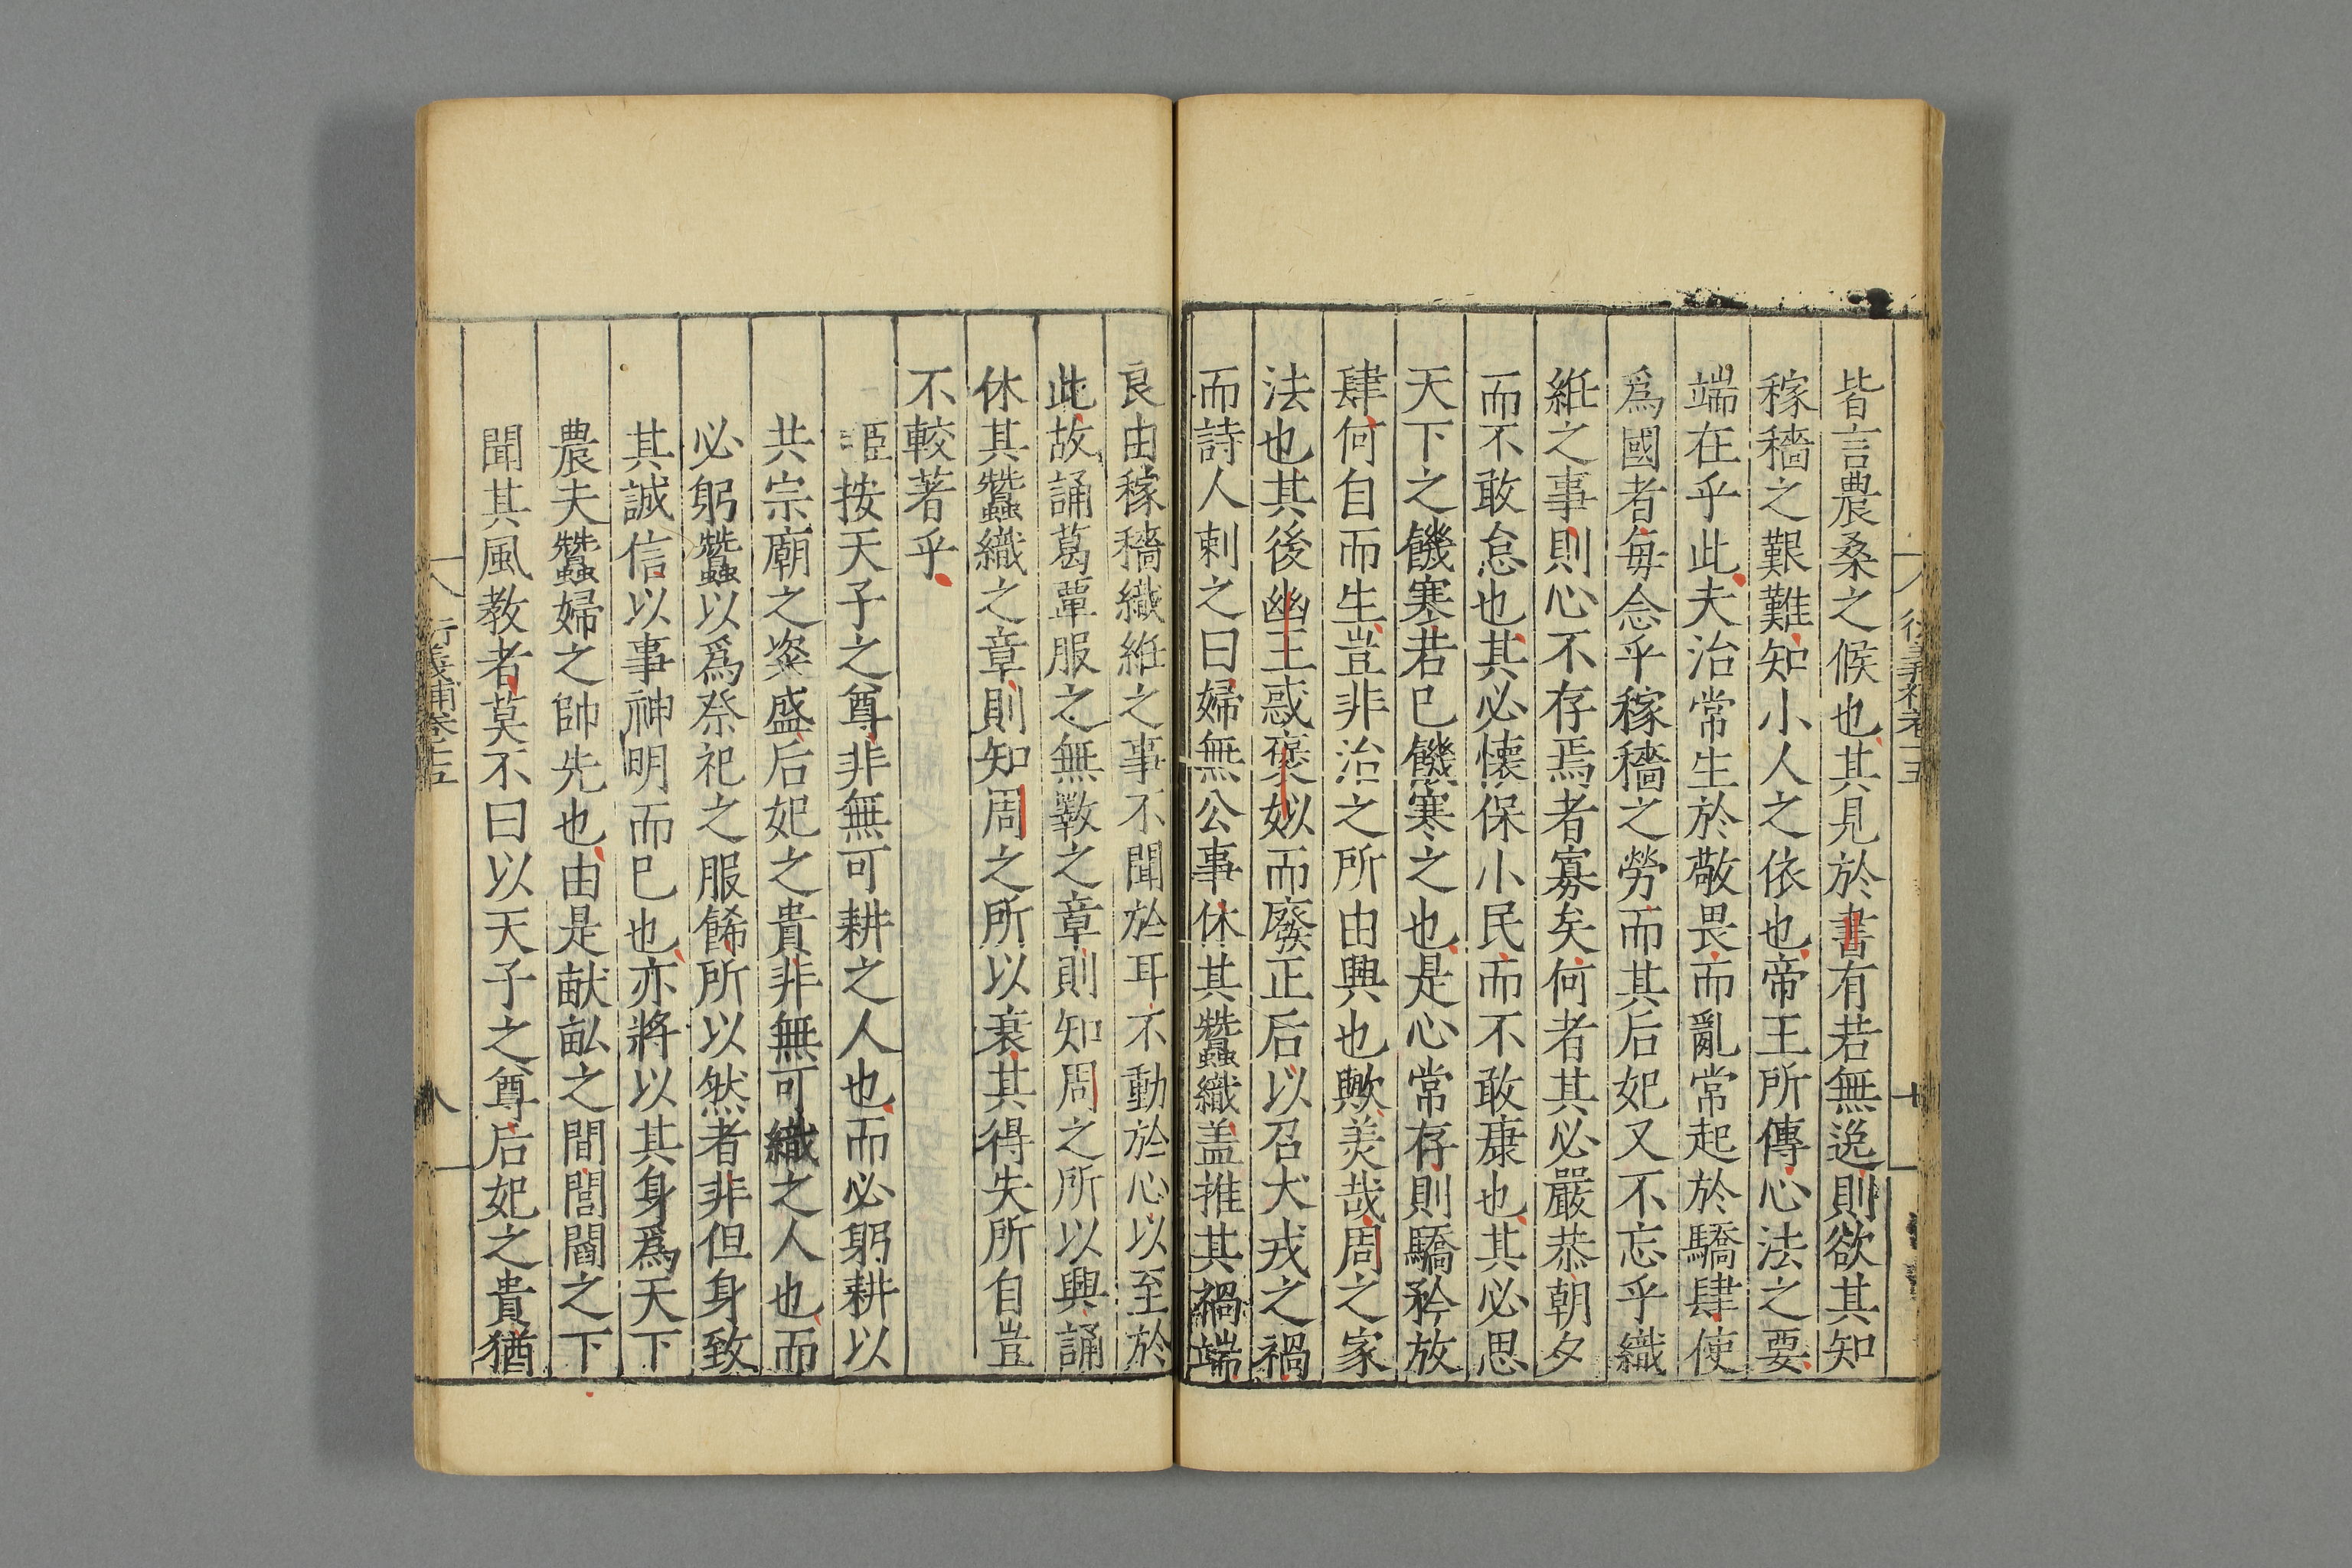 皆言農桑之候也其見於書有若無逸則欲其知
稼穡之艱難知小人之依也帝王所傳心法之要
端在乎此夫治常生於敬畏而亂常起於驕肆使
爲國者每念乎稼穡之勞而其后妃又不忘乎織
紝之事則心不存焉者寡矣何者其必嚴恭朝夕
而不敢怠也其必懐保小民而不敢康也其必思
天下之饑寒若已饑寒之也是心常存則驕矜放
肆何自而生豈非治之所由興也歟羙哉周之家
法也其後幽王惑褒姒而廢正后以召犬戎之禍
而詩人刺之曰婦無公事休其蠶織盖推其禍端
良由稼穡織紝之事不聞於耳不動於心以至於
此故誦葛覃服之無斁之章則知周之所以興誦
休其蠶織之章則知周之所以衰其得失所自豈
不較著乎
臣按天子之尊非無可耕之人也而必躬耕以
共宗廟之粢盛后妃之貴非無可織之人也而
必躬蠶以爲祭祀之服餙所以然者非但身致
其誠信以事神明而已也亦將以其身爲天下
農夫蠶婦之帥先也由是献畆之間閭閻之下
聞其風教者莫不曰以天子之尊后妃之貴猶
行義補卷十五
八